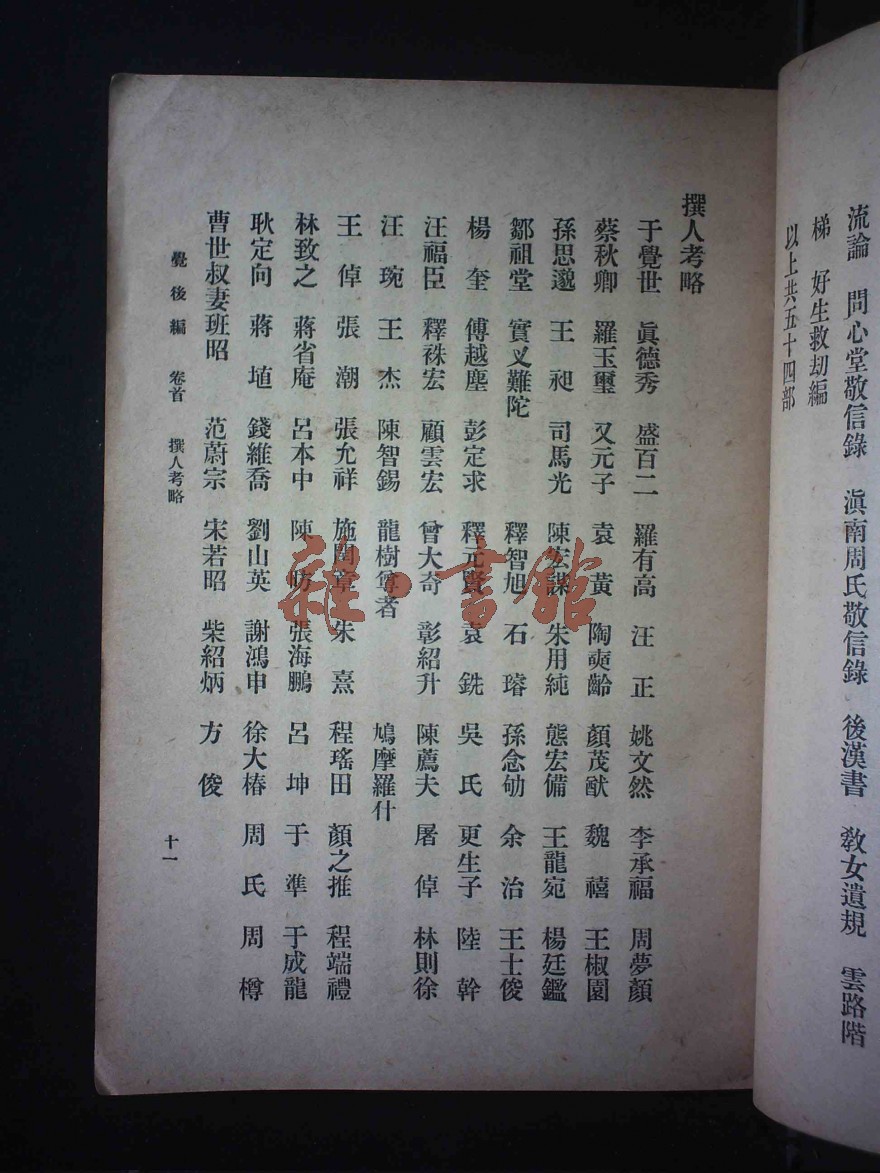 流論　問心堂敬信錄　滇南周氏敬信錄　後漢書　敎女遺規　雲路階
梯　好生救劫編
以上共五十四部
撰人考略
于覺世　眞德秀　盛百二　羅有高　汪　正　姚文然　李承福　周夢顏
蔡秋卿　羅玉璽　又元子　袁　黃　陶奭齡　顏茂猷　魏　禧　王椒園
孫思邈　王　昶　司馬光　陳宏謀　朱用純　熊宏備　王龍宛　楊廷鑑
鄒祖堂　實叉難陀　釋智旭　石　璿　孫念劬　余　治　王士俊
楊　奎　傅越塵　彭定求　釋元賢　袁　銑　吳　氏　更生子　陸　幹
汪福臣　釋袾宏　顧雲宏　曾大奇　彰紹升　陳薦夫　屠　倬　林則徐
汪　琬　王　杰　陳智錫　龍樹尊者　鳩摩羅什
王　倬　張　潮　張允祥　施閏章　朱　熹　程瑤田　顏之推　程端禮
林致之　蔣省庵　呂本中　陳　昉　張海鵬　呂　坤　于　準　于成龍
耿定向　蔣　埴　錢維喬　劉山英　謝鴻申　徐大椿　周　氏　周　樽
曹世叔妻班昭　范蔚宗　宋若昭　柴紹炳　方　俊
覺後編　卷首　撰人考略　十一
雜·書館